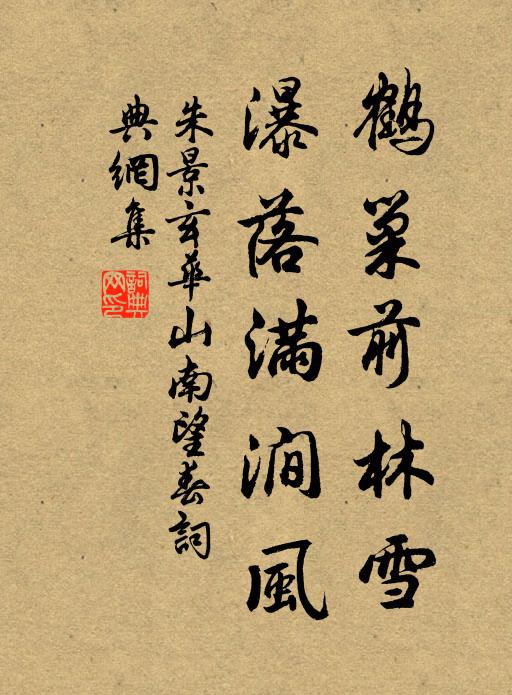 鶴巢前林雪
瀑落滿澗風
朱景玄華山南望春詞
典網集
詞典网印